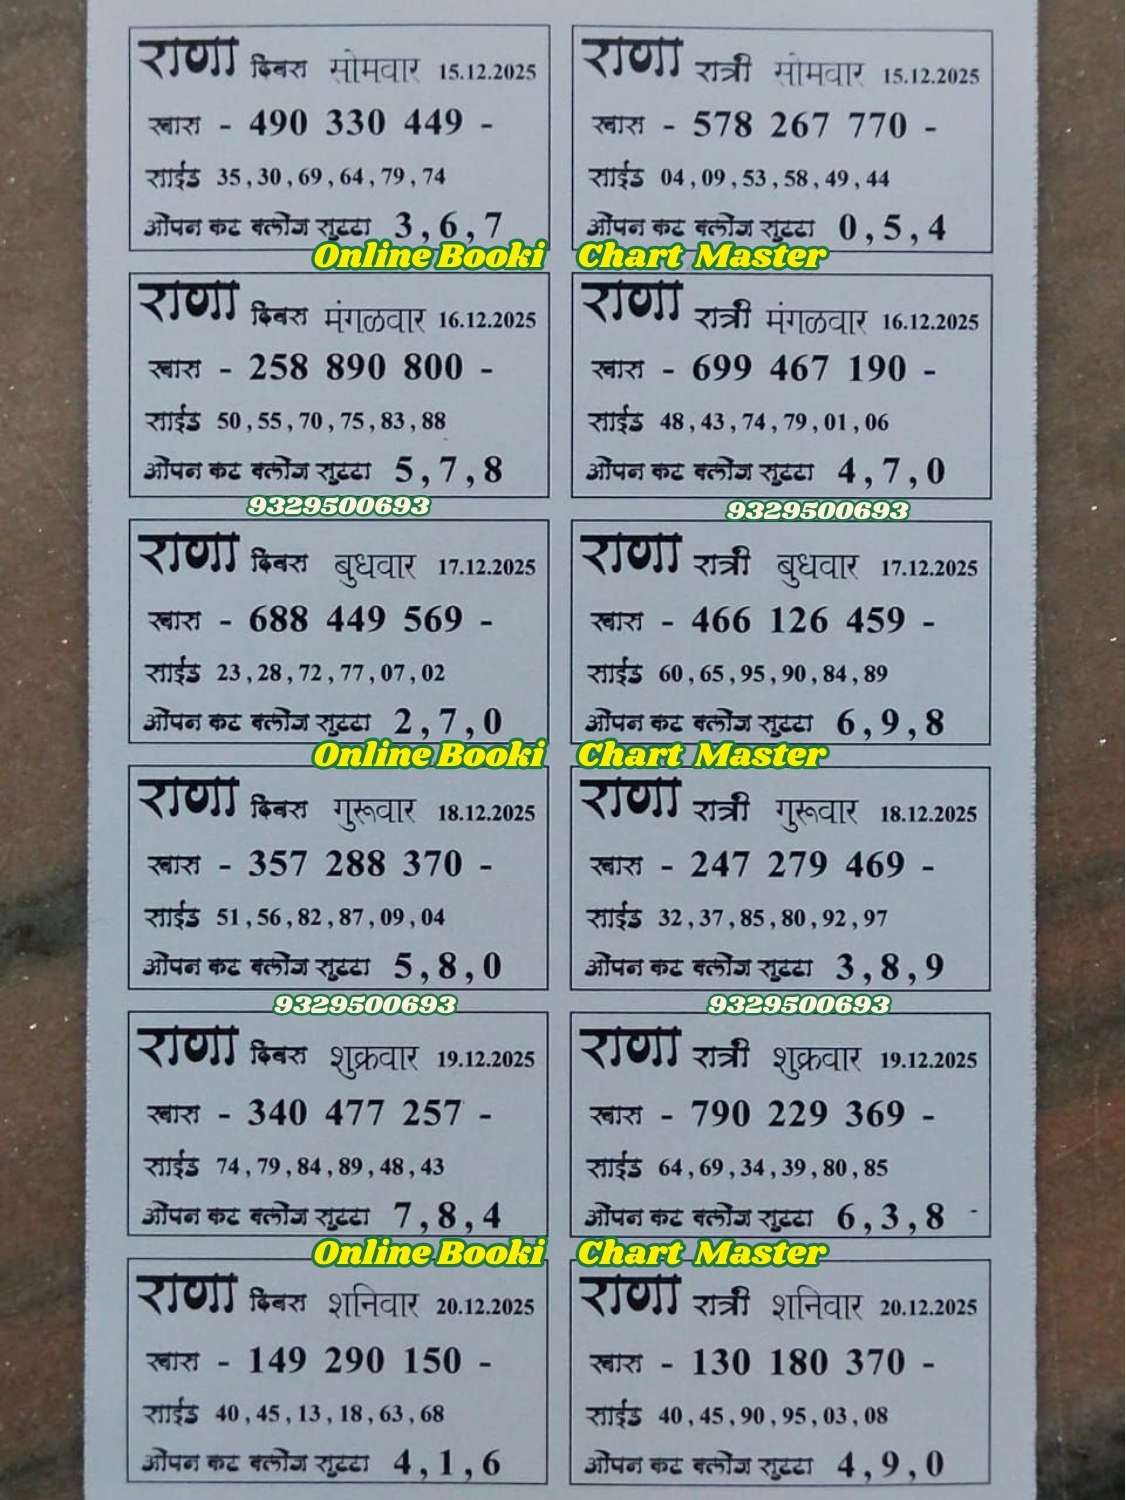 राणा दिवस सोमवार 15.12.2025
खास - 490 330 449 -
साईड 35,30,69,64,79,74
ओपन कट क्लोज सुट्टा 3,6,7
राणा रात्री सोमवार 15.12.2025
खास - 578 267 770 -
साईड 04,09,53,58,49,44
ओपन कट क्लोज सुट्टा 0,5,4
Online Booki Chart Master
राणा दिवस मंगळवार 16.12.2025
खास - 258 890 800 -
साईड 50,55,70,75,83,88
ओपन कट क्लोज सुट्टा 5,7,8
राणा रात्री मंगळवार 16.12.2025
खास - 699 467 190 -
साईड 48,43,74,79,01,06
ओपन कट क्लोज सुट्टा 4,7,0
9329500693 9329500693
राणा दिवस बुधवार 17.12.2025
खास - 688 449 569 -
साईड 23,28,72,77,07,02
ओपन कट क्लोज सुट्टा 2,7,0
राणा रात्री बुधवार 17.12.2025
खास - 466 126 459 -
साईड 60,65,95,90,84,89
ओपन कट क्लोज सुट्टा 6,9,8
Online Booki Chart Master
राणा दिवस गुरूवार 18.12.2025
खास - 357 288 370 -
साईड 51,56,82,87,09,04
ओपन कट क्लोज सुट्टा 5,8,0
राणा रात्री गुरूवार 18.12.2025
खास - 247 279 469 -
साईड 32,37,85,80,92,97
ओपन कट क्लोज सुट्टा 3,8,9
9329500693 9329500693
राणा दिवस शुक्रवार 19.12.2025
खास - 340 477 257 -
साईड 74,79,84,89,48,43
ओपन कट क्लोज सुट्टा 7,8,4
राणा रात्री शुक्रवार 19.12.2025
खास - 790 229 369 -
साईड 64,69,34,39,80,85
ओपन कट क्लोज सुट्टा 6,3,8
Online Booki Chart Master
राणा दिवस शनिवार 20.12.2025
खास - 149 290 150 -
साईड 40,45,13,18,63,68
ओपन कट क्लोज सुट्टा 4,1,6
राणा रात्री शनिवार 20.12.2025
खास - 130 180 370 -
साईड 40,45,90,95,03,08
ओपन कट क्लोज सुट्टा 4,9,0